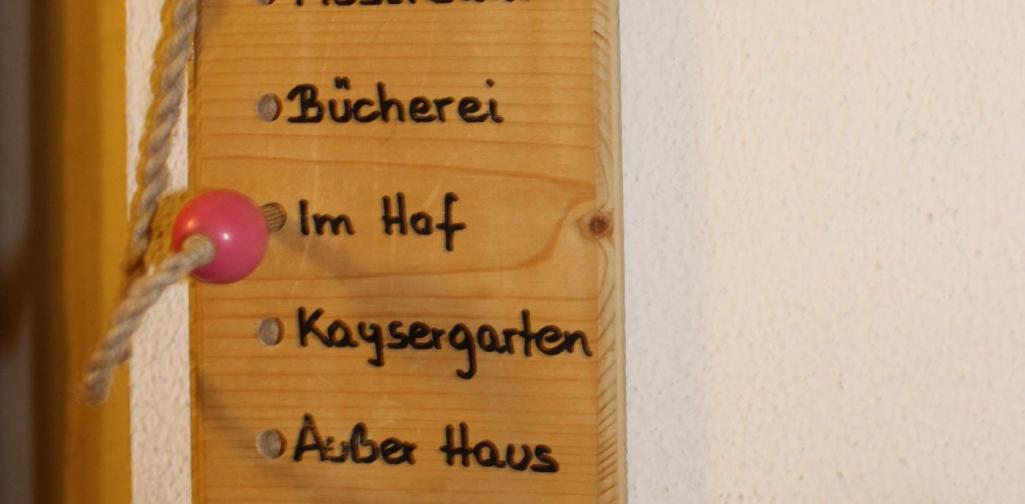 Bücherei
Im Hof
Kaysergarten
Außer Haus